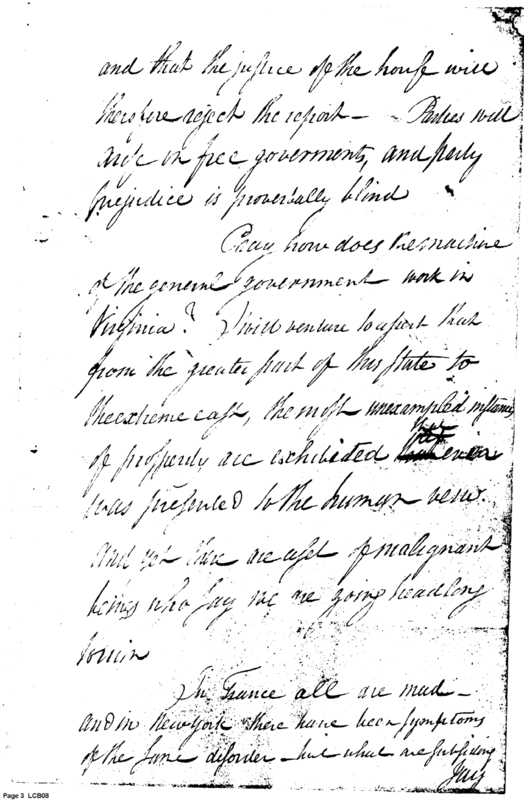 and that the justice of the house will
therefore reject the report — Parties will
arise in free goverments, and party
prejudice is proverbally blind
Pray how does the machine
of the general government work in
Virginia? I will venture to assert that
from the greater part of this state to
the extreme east, the most unexampled instances
of prosperity are exhibited that ever
was presented to the human veiw.
and yet there are a set of malignant
beings who say we are going headlong
to ruin
In France all are mad —
and in New York there have been symptoms
of the same disorder — but what are subsiding
Jay
Page 3 LCB08